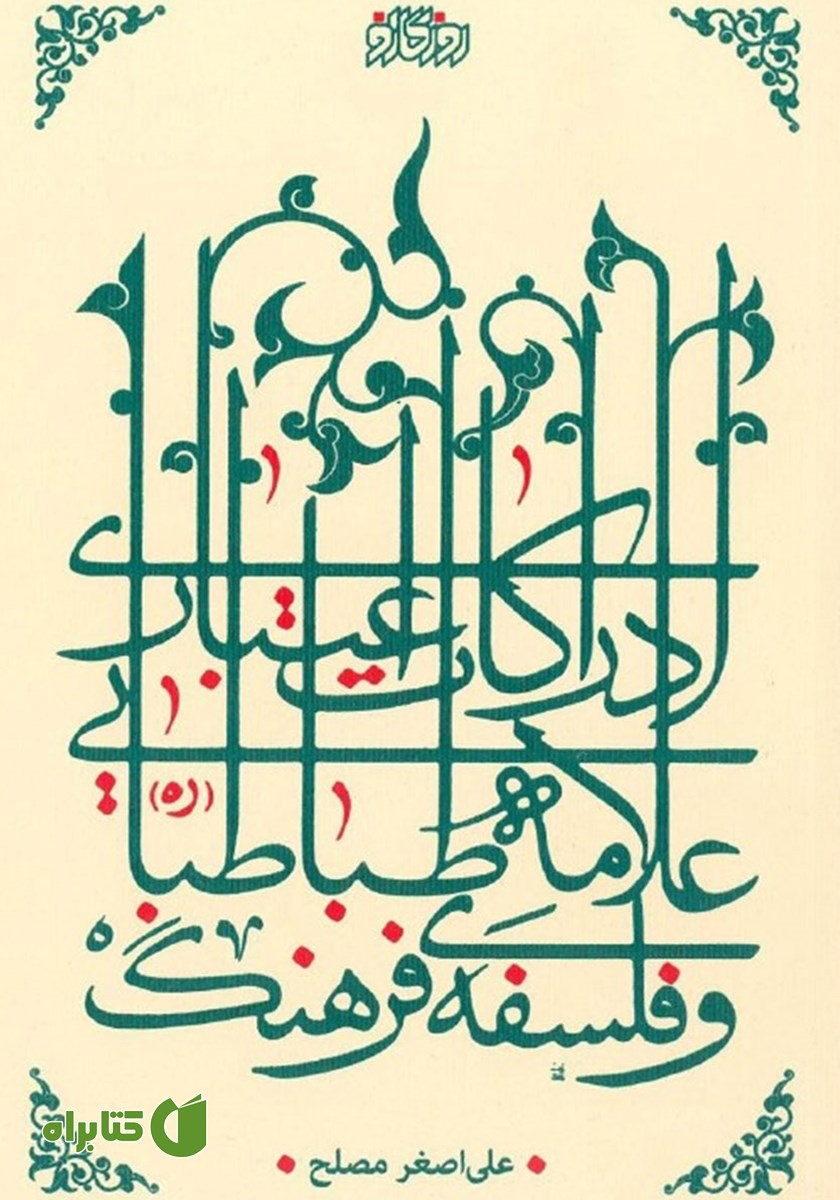 روزگار نو
ادراکات اعتباری
علامه طباطبایی (ره)
و فلسفهٔ فرهنگ
کتابراه
علی‌اصغر مصلح